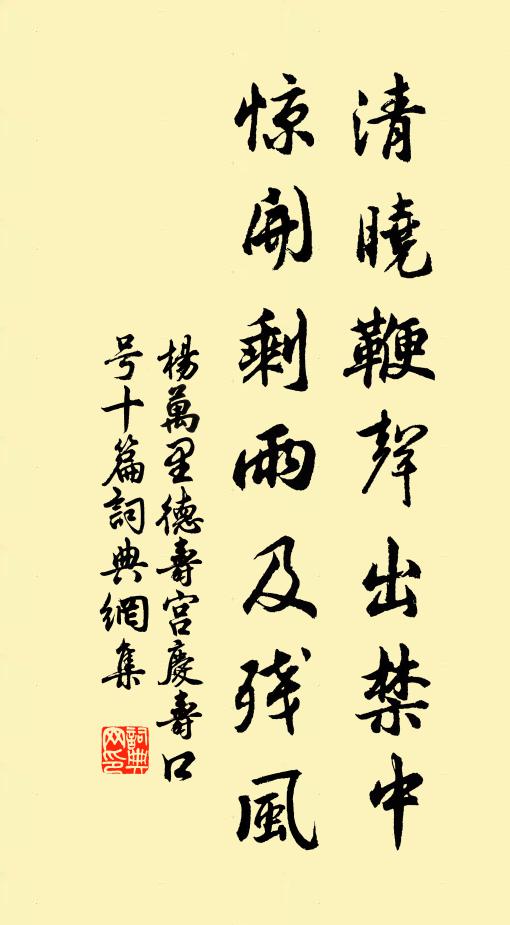 清曉鞭聲出禁中
惊開剩雨及残風
楊萬里德壽宫慶壽口
号十篇詞典網集
詞典
网印